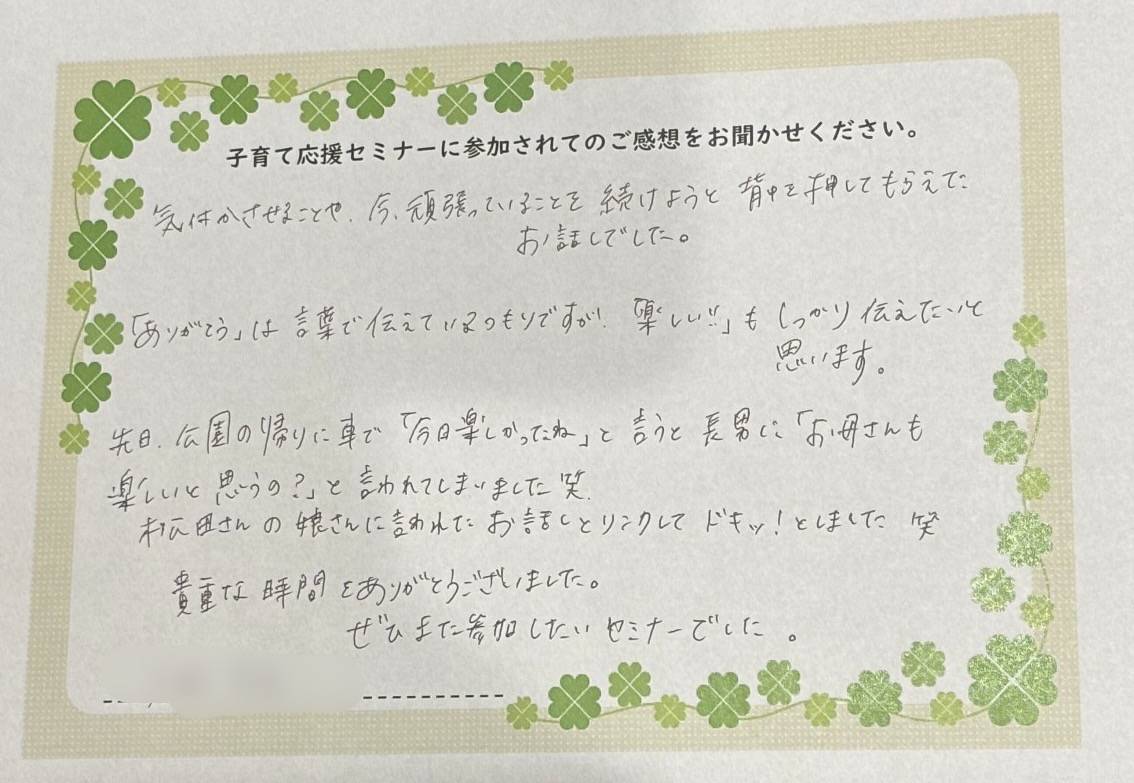 子育て応援セミナーに参加されてのご感想をお聞かせください。
気付かさせることや、今、頑張っていることを続けようと背中を押してもらえた
お話しでした。
「ありがとう」は言葉で伝えているつもりですが、「楽しい!!」もしっかり伝えたいと
思います。
先日、公園の帰りに車で「今日楽しかったね」と言うと長男に「お母さんも
楽しいと思うの?」と言われてしまいました笑
松田さんの娘さんに言われたお話しとリンクしてドキッ!としました笑
貴重な時間をありがとうございました。
ぜひまた参加したいセミナーでした。